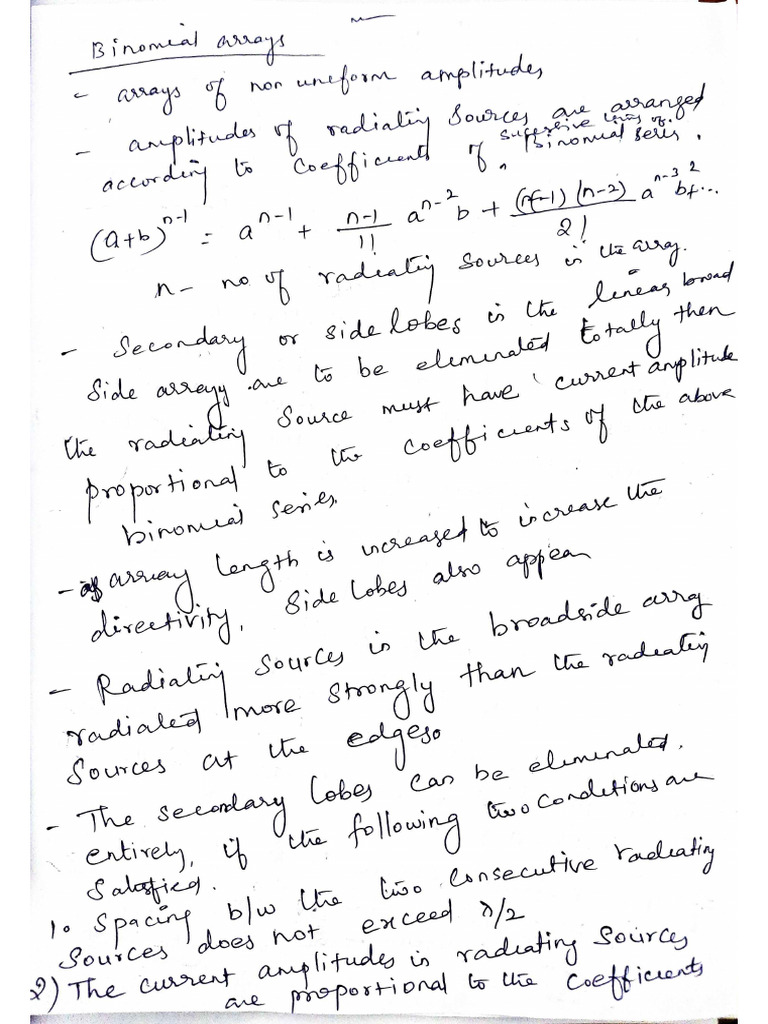 Binomial arrays
- arrays of non uneform amplitudes
- amplitudes of radiating Sources are arranged
according to coefficients of successive terms of Binomial series.
(a+b)^{n-1} = a^{n-1} + \frac{n-1}{1!} a^{n-2} b + \frac{(n-1)(n-2)}{2!} a^{n-3} b^2 + ...
n- no of radiating sources in the array.
- Secondary or side lobes in the linear broad
side array are to be eleminated totally then
the radiating source must have current amplitude
proportional to the coefficients of the above
binomial series.
- as array length is increased to increase the
directivity, side lobes also appear
- Radiating sources in the broadside array
radiated more strongly than the radiating
sources at the edges.
- The secondary lobes can be eleminated.
entirely, if the following two conditions are
satisfied.
1. Spacing b/w the two consecutive radiating
sources does not exceed λ/2
2) The current amplitudes in radiating sources
are proportional to the coefficients